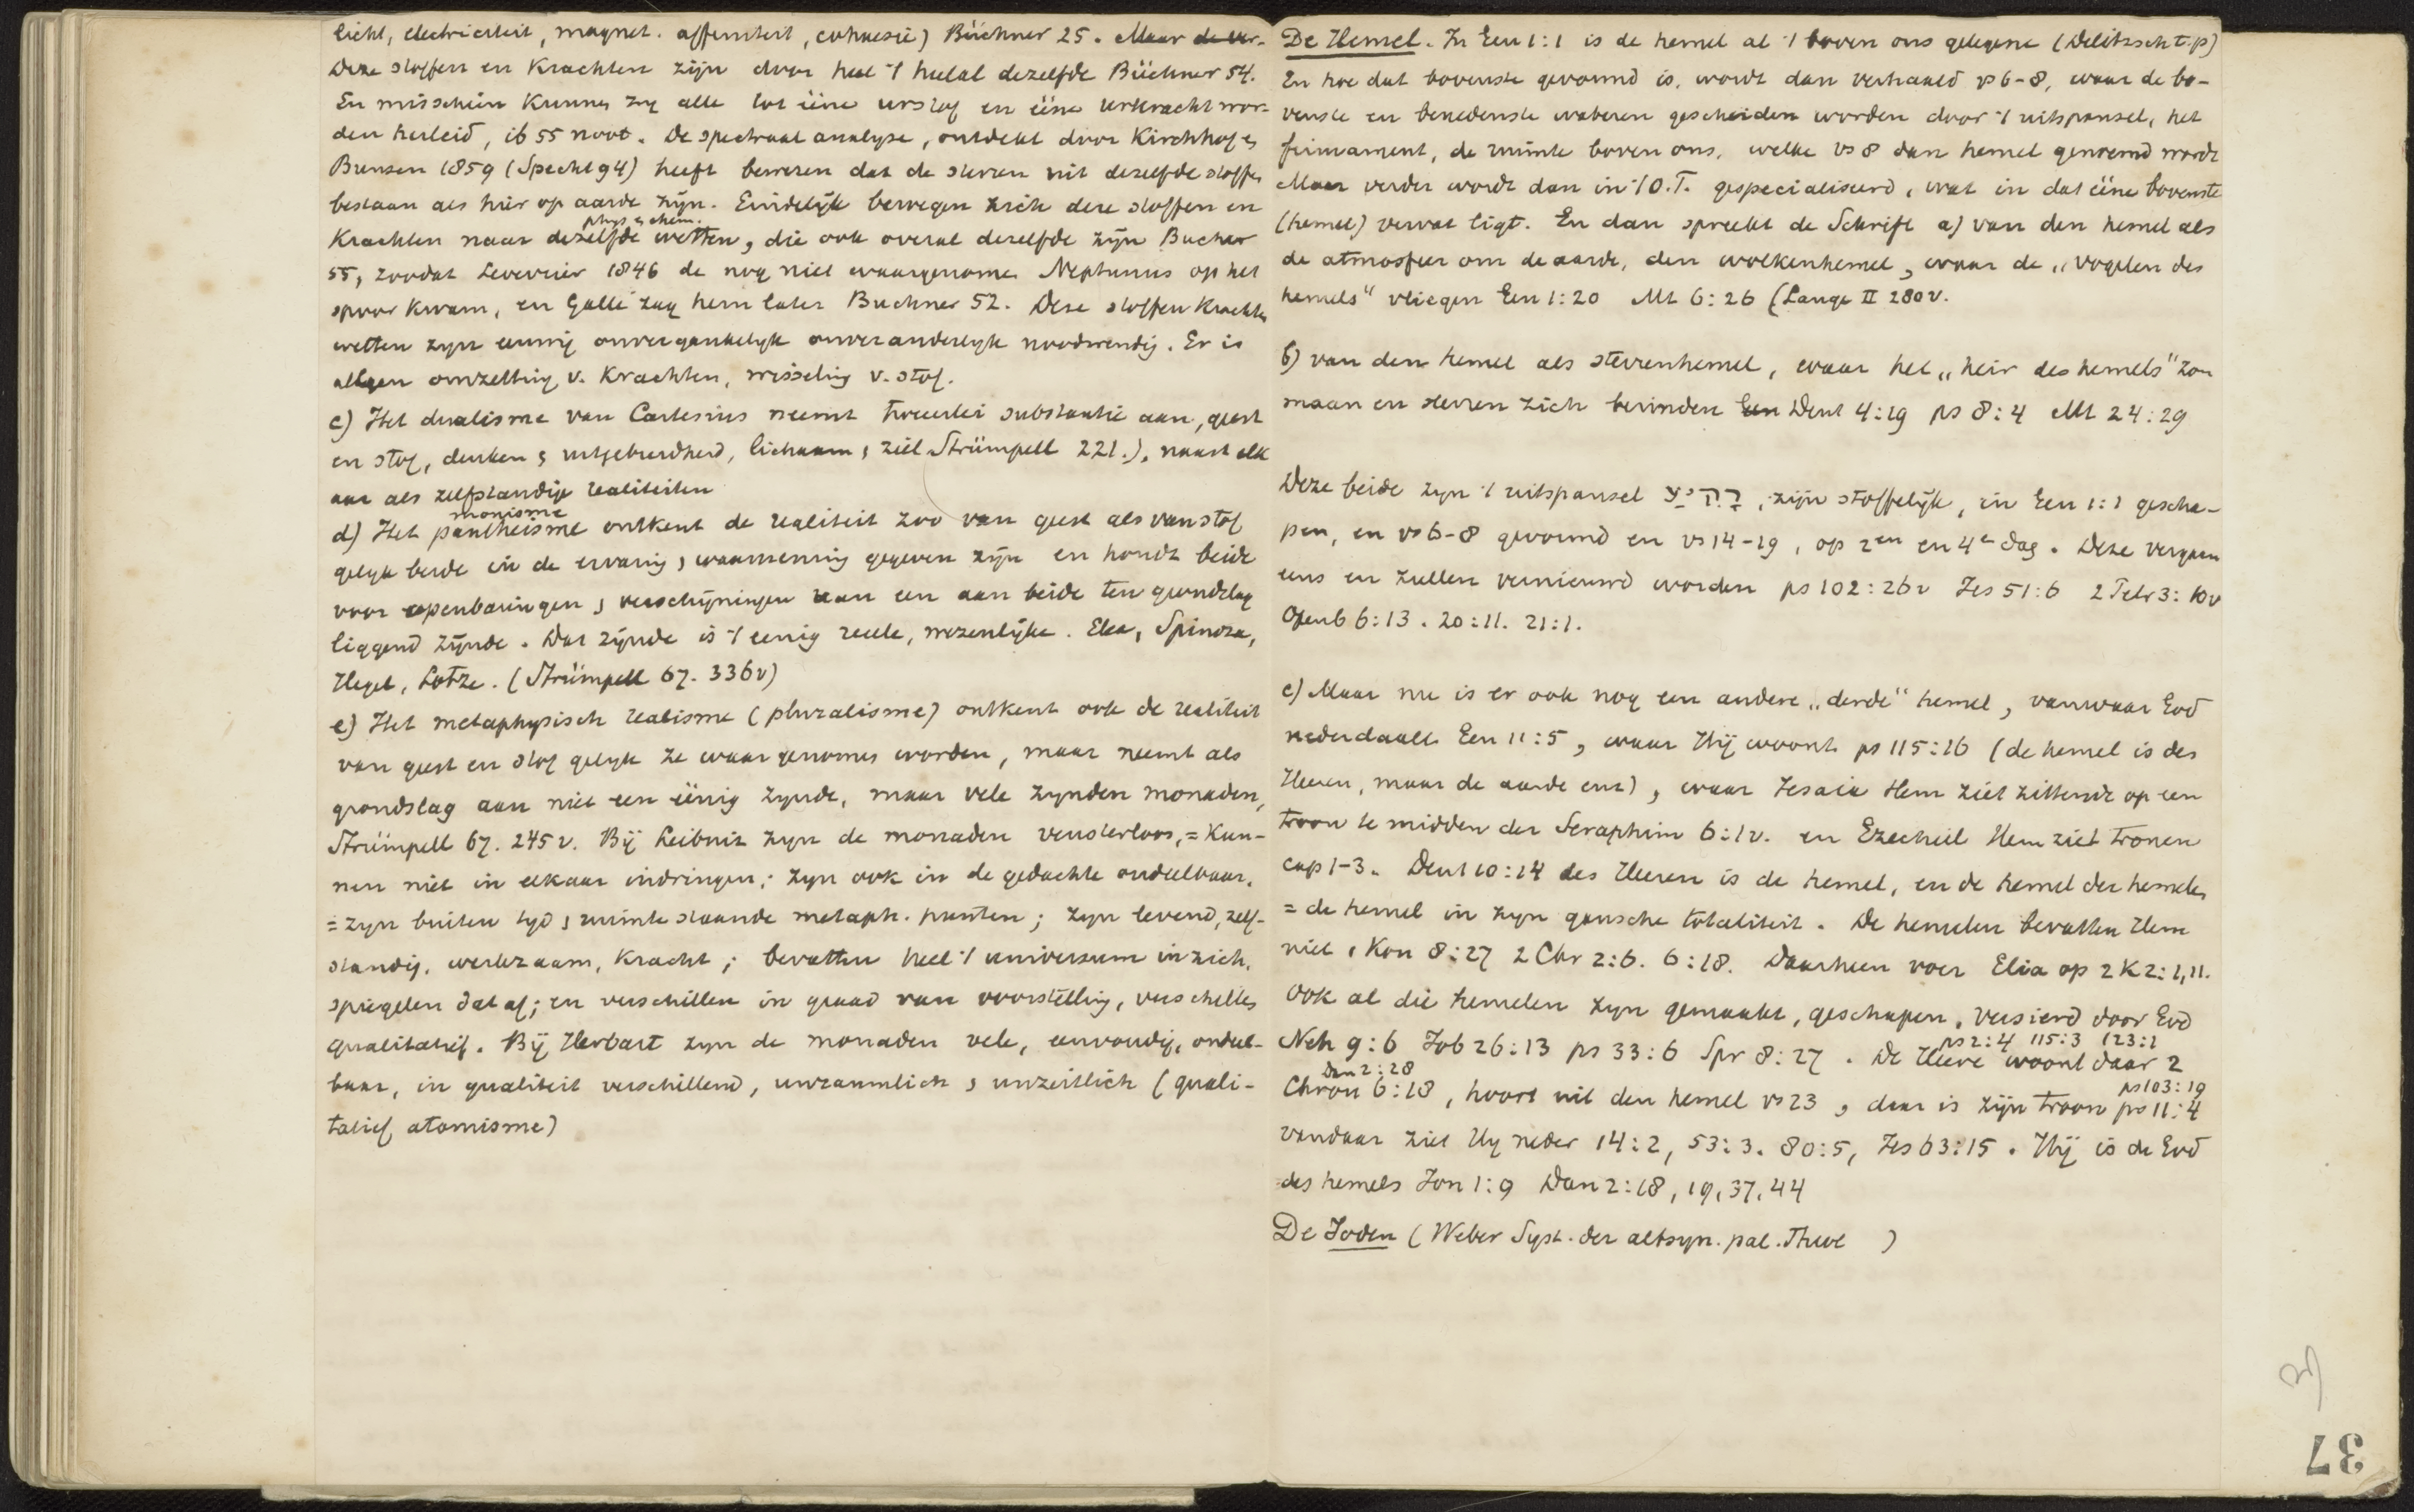 licht, electriciteit, magnet. affiniteit, cohaesie) Büchner 25. Maar de ver-
Deze stoffen en Krachten zijn door heel 't heelal dezelfde Büchner 54.
En misschien Kunnen zij alle tot ééne urstof en ééne urkracht wor-
den herleid, ib 55 noot. De spectraal analyse, ontdekt door Kirchhof en
Bunsen 1859 (Specht 94) heeft bewezen dat de sterren uit dezelfde stoffen
bestaan als hier op aarde zijn. Eindelijk bewegen zich deze stoffen en
phys. & chem.
Krachten naar dezelfde wetten, die ook overal dezelfde zijn Bucher
55, zoodat Leverrier 1846 de nog niet waargenomen Neptunus op het
spoor kwam, en Galle zag hem later Buchner 52. Deze stoffen Krachten
wetten zyn eeuwig onvergankelyk onveranderlyk noodwendig. Er is
alleen omzetting v. Krachten, wisseling v. stof.
c) Het dualisme van Cartesius neemt tweeerlei substantie aan, geest
en stof, denken & uitgebreidheid, lichaam & ziel Strümpell 221.), naast elk
aar als zelfstandige realiteiten
monisme
d) Het pantheisme ontkent de realiteit zoo van geest als van stof
gelyk beide in de ervaring & waarneming gegeven zijn en houdt beide
voor openbaringen & verschijningen van een aan beide ten grondslag
liggend zijnde. Dat zijnde is 't eenig reële, wezenlijke. Elea, Spinoza,
Hegel, Lotze. (Strümpell 67. 336v)
e) Het metaphysisch realisme (pluralisme) ontkent ook de realiteit
van geest en stof gelyk ze waargenomen worden, maar neemt als
grondslag aan niet een éénig zynde, maar vele zynden monaden,
Strümpell 67. 245 v. Bij Leibniz zyn de monaden vensterloos, = Kun-
nen niet in elkaar indringen; zyn ook in de gedachte ondeelbaar,
= zyn buiten tyd & ruimte staande metaph. punten; zyn levend, zelf-
standig, werkzaam, Kracht; bevatten heel 't universum in zich,
spiegelen dat af; en verschillen in graad van voorstelling, verschillen
qualitatief. Bij Herbart zyn de monaden vele, eenvoudig, ondeel-
baar, in qualiteit verschillend, unraumlich & unzeitlich (quali-
tatief atomisme)
De Hemel. In Gen 1:1 is de hemel al 't boven ons gelegene (Delitzsch t.p)
En hoe dat bovenste gevormd is, wordt dan verhaald vs 6-8, waar de bo-
venste en benedenste wateren gescheiden worden door 't uitspansel, het
firmament, de ruimte boven ons, welke vs 8 dan hemel genoemd wordt
Maar verder wordt dan in 't O.T. gespecialiseerd, wat in dat ééne bovenste
(hemel) vervat ligt. En dan spreekt de Schrift a) van den hemel als
de atmosfeer om de aarde, den wolkenhemel, waar de „vogelen des
hemels" vliegen Gen 1:20 Mt 6:26 (Lange II 280v.
b) van den hemel als sterrenhemel, waar het „heir des hemels" zon
maan en sterren zich bevinden Gen Deut 4:19 ps 8:4 Mt 24:29
Deze beide zyn 't uitspansel רקיע, zijn stoffelijk, in Gen 1:1 gescha-
pen, en vs 6-8 gevormd en vs 14-19, op 2en en 4e dag. Deze vergaan
eens en zullen vernieuwd worden ps 102:26v Jes 51:6 2 Petr 3:10v
Openb 6:13. 20:11. 21:1.
c) Maar nu is er ook nog een andere „derde" hemel, vanwaar God
nederdaalt Gen 11:5, waar Hij woont ps 115:16 (de hemel is des
Heeren, maar de aarde enz), waar Jesaia Hem ziet zittende op een
troon te midden der Seraphim 6:1v. en Ezechiel Hem ziet tronen
cap 1-3. Deut 10:14 des Heeren is de hemel, en de hemel der hemelen
= de hemel in zyn gansche totaliteit. De hemelen bevatten Hem
niet 1 Kon 8:27 2 Chr 2:6. 6:18. Daarheen voer Elia op 2 K 2:1,11.
Ook al die hemelen zyn gemaakt, geschapen, versierd door God
ps 2:4 115:3 123:1
Neh 9:6 Job 26:13 ps 33:6 Spr 8:27. De Heere woont daar 2
Dan 2:28 ps 103:19
Chron 6:18, hoort uit den hemel vs 23, daar is zijn troon ps 11:4
vandaar ziet Hy neder 14:2, 53:3. 80:5, Jes 63:15. Hij is de God
des hemels Jon 1:9 Dan 2:18, 19, 37, 44
De Joden (Weber Syst. der altsyn. pal. Theol )
37